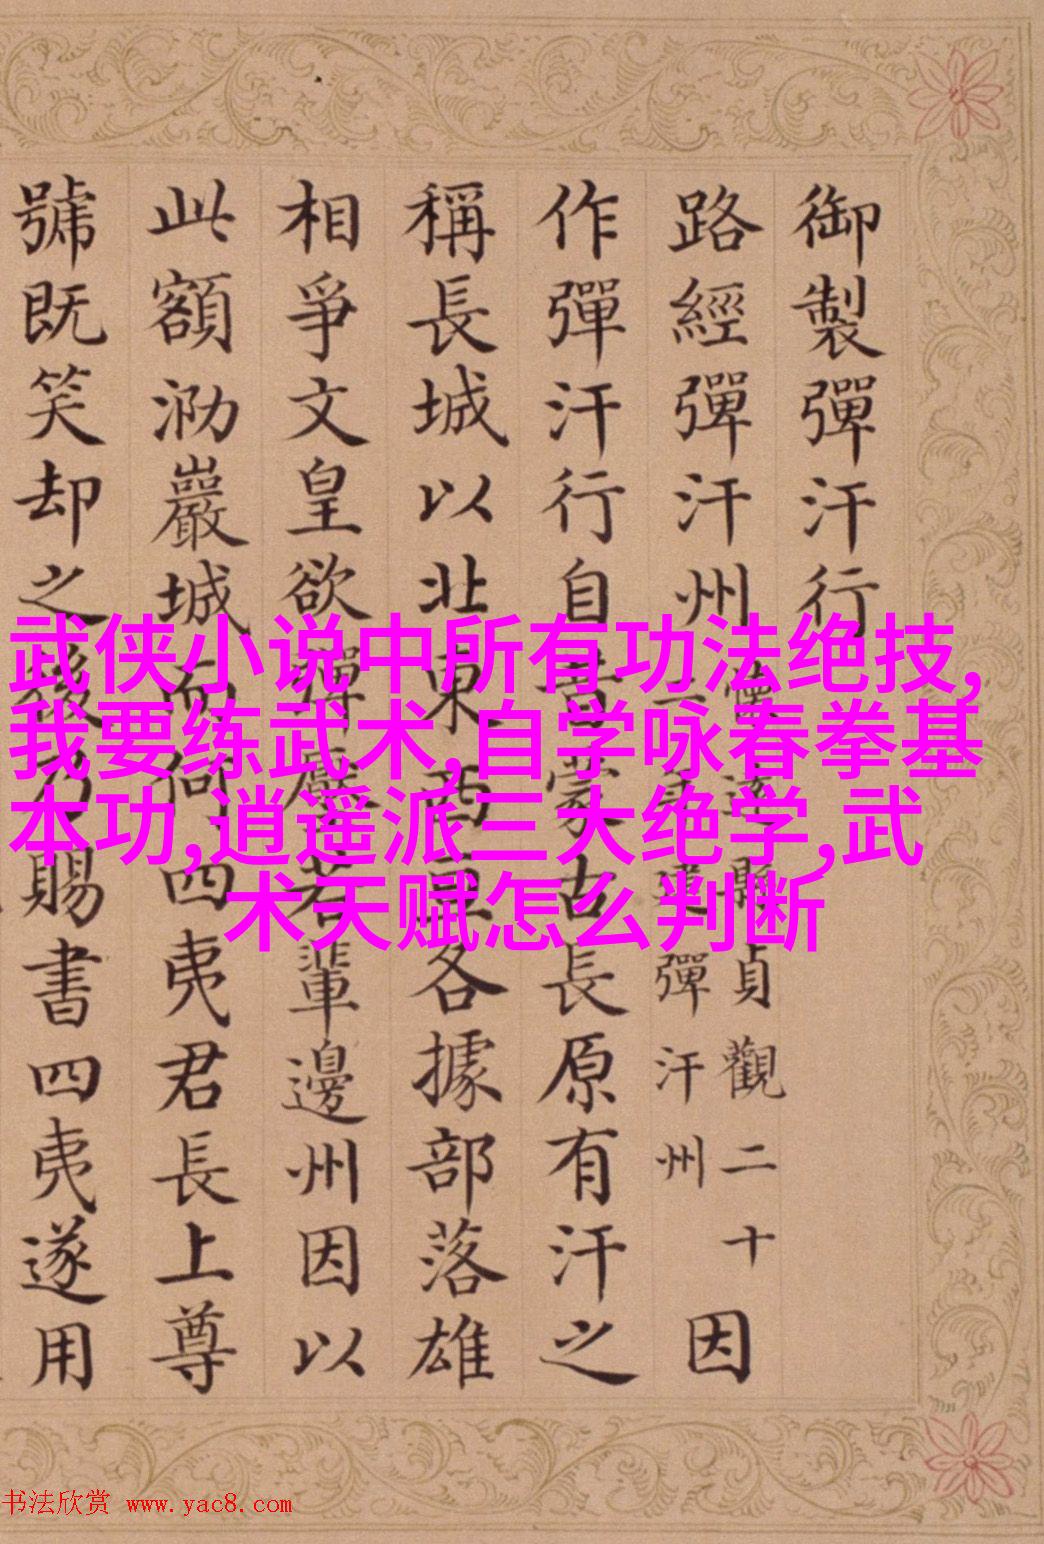 御製彈汗行
路經彈汗州
縣貞觀二十
彈汗州
因
作彈汗行自昔蒙古長原有汗之
稱長城以北東西亘各據部落雄
相爭文皇欲若輩邊州因以
此額泐巖城而何四夷君長上尊
號既笑却之後乃賜書四夷遂用
武侠小说中所有功法绝技,
我要练武术,自学咏春拳基
本功,逍遥派三大绝学,武
术天赋怎么判断
书法欣赏 www.yac8.com